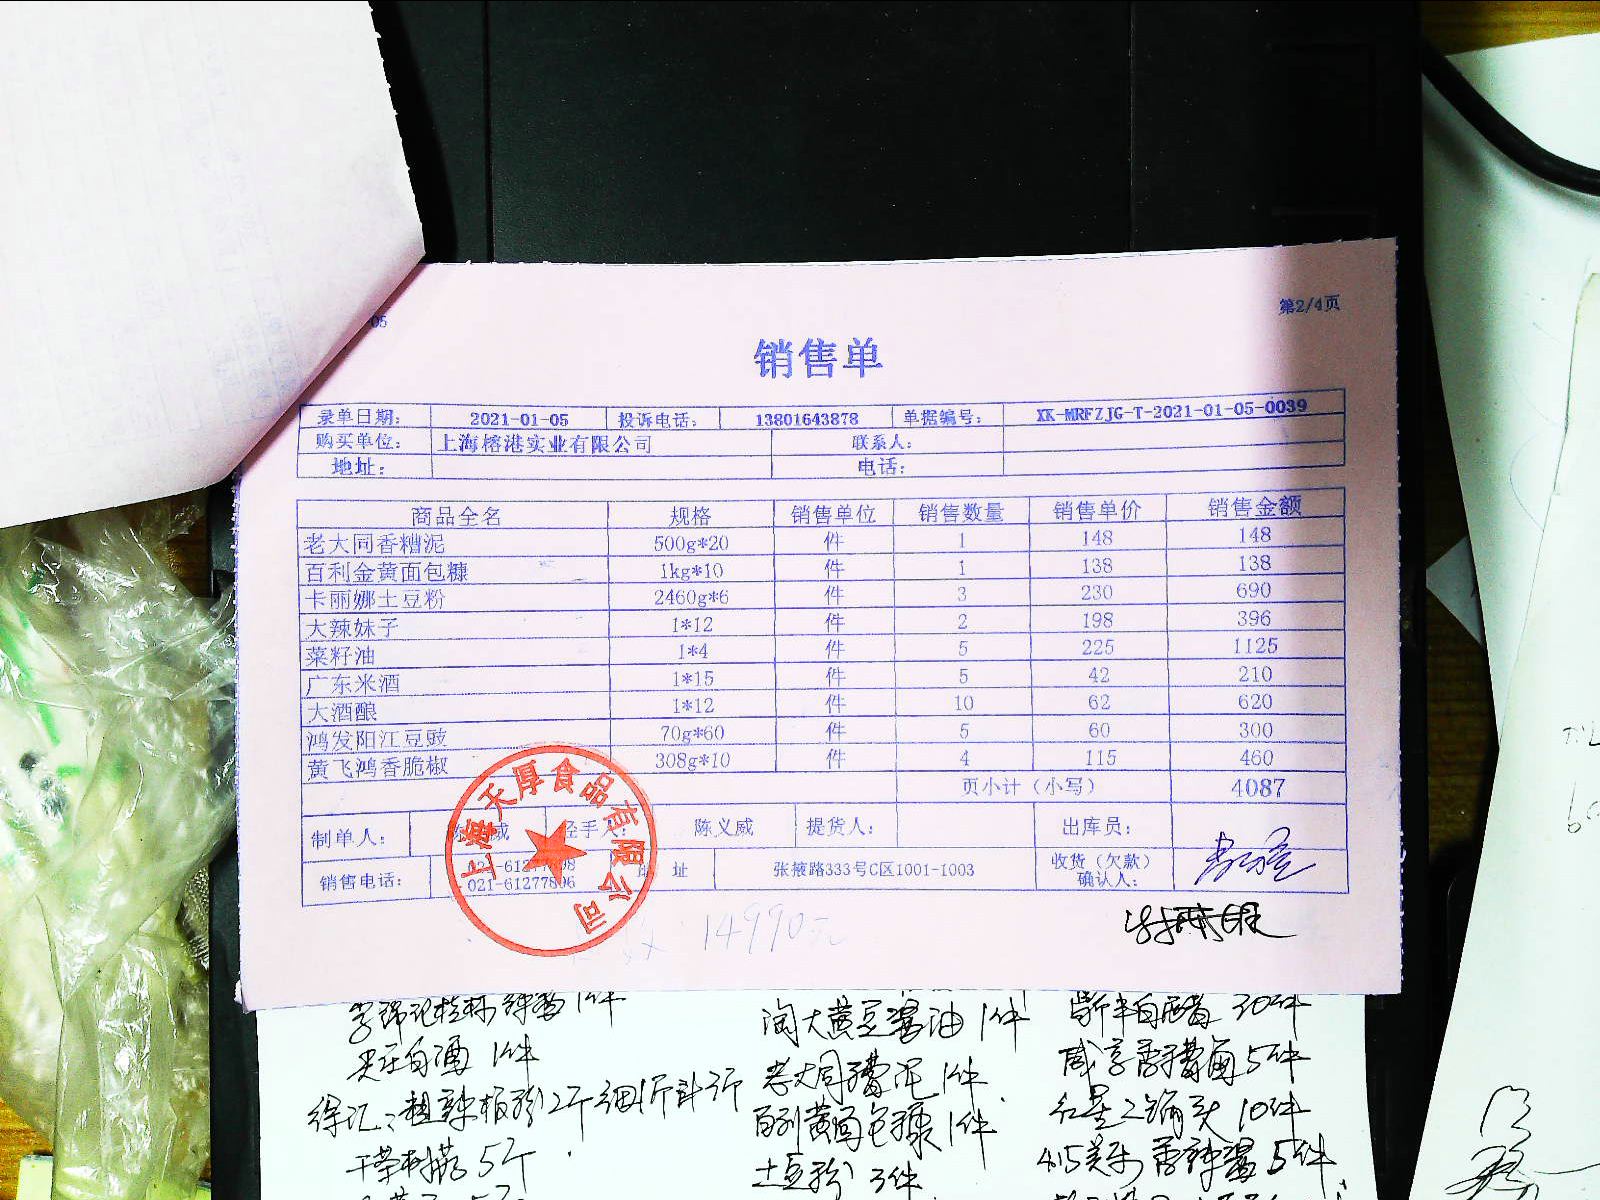 05
第2/4页
销售单
录单日期： 2021-01-05 投诉电话： 13801643878 单据编号： XK-MRFZJG-T-2021-01-05-0039
购买单位： 上海榕港实业有限公司 联系人：
地址： 电话：
商品全名 规格 销售单位 销售数量 销售单价 销售金额
老大同香糟泥 500g*20 件 1 148 148
百利金黄面包糠 1kg*10 件 1 138 138
卡丽娜土豆粉 2460g*6 件 3 230 690
大辣妹子 1*12 件 2 198 396
菜籽油 1*4 件 5 225 1125
广东米酒 1*15 件 5 42 210
大酒酿 1*12 件 10 62 620
鸿发阳江豆豉 70g*60 件 5 60 300
黄飞鸿香脆椒 308g*10 件 4 115 460
页小计（小写） 4087
制单人： 威 经手人： 陈义威 提货人： 出库员：
销售电话： 021-61277806 址 张掖路333号C区1001-1003 收货（欠款）确认人：
上海天厚食品有限公司
14990元
1件
淘大黄豆酱油 1件
白醋 30件
白酒 1件
老大同糟泥 1件
咸亨香糟卤 5件
2斤 细1斤
百利黄面包糠 1件
红星二锅头 10件
5斤
土豆粉 3件
香辣酱 5件